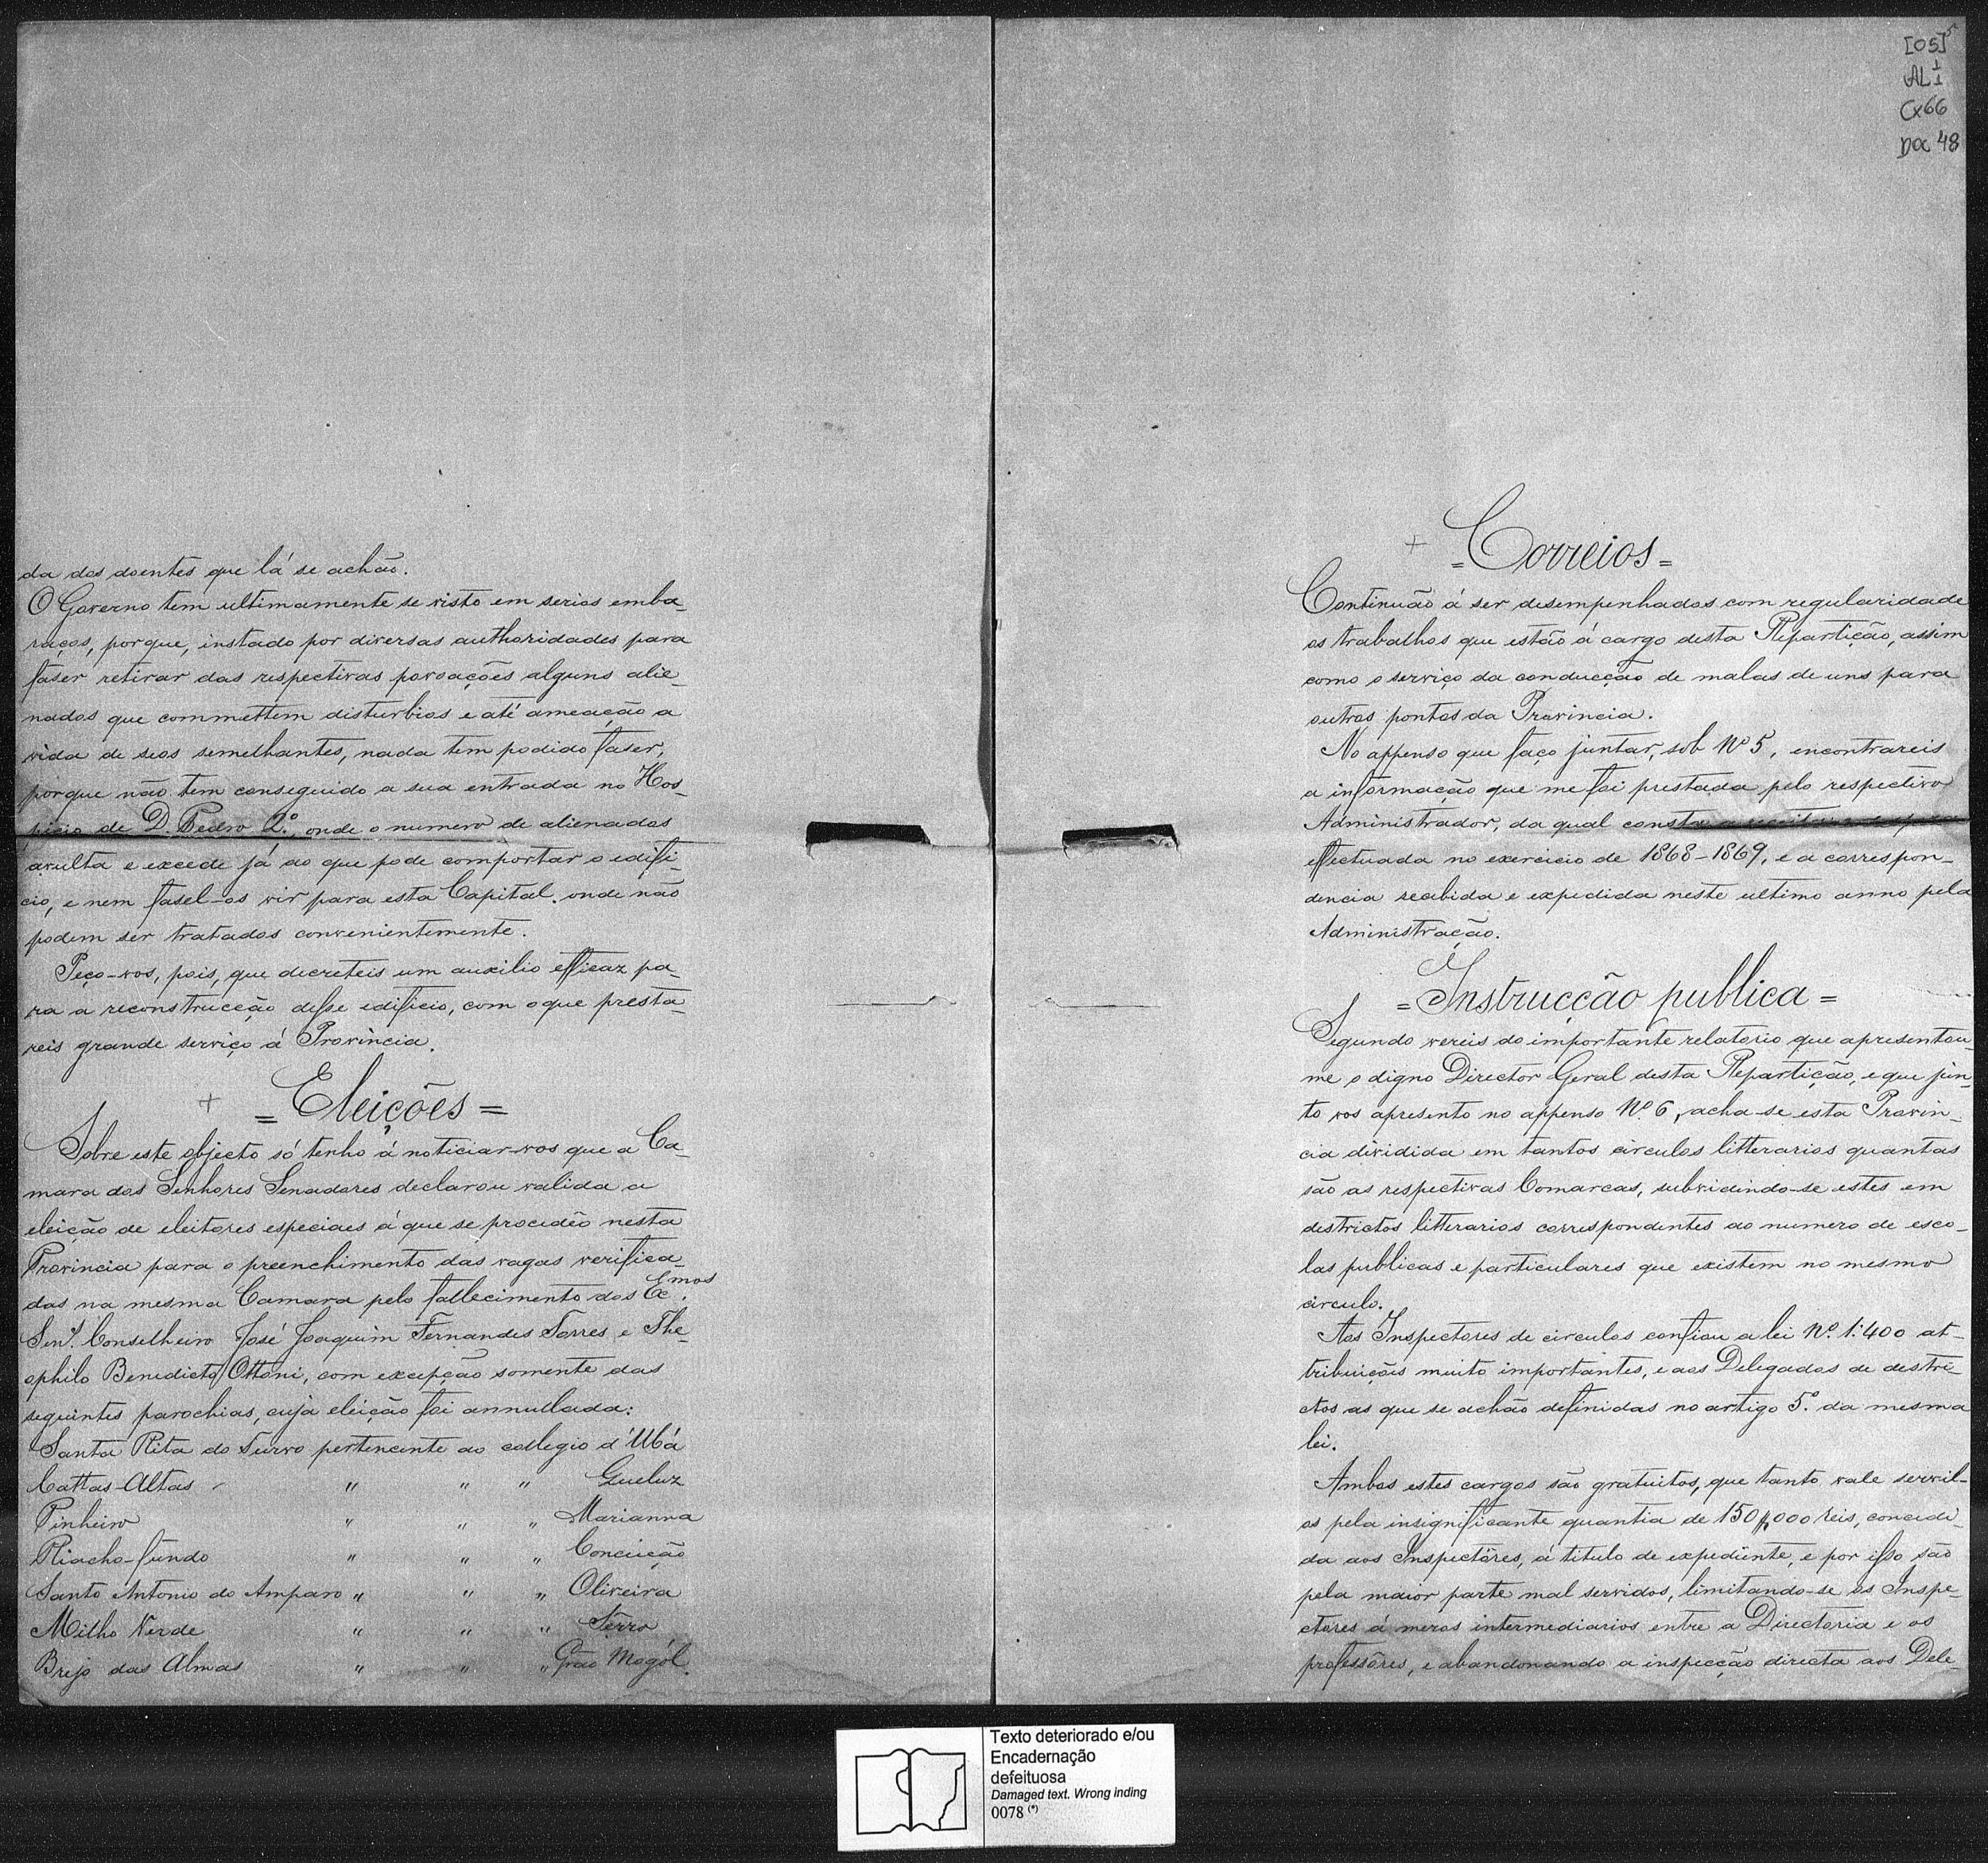 da dos doentes que lá se achão.
O Governo tem ultimamente se visto em serios emba-
raços, porque, instado por diversas authoridades para
faser retirar das respectivas povoações alguns alie-
nados que commettem disturbios e até ameação a
vida de seos semelhantes, nada tem podido faser,
porque não tem conseguido a sua entrada no Hos-
picio de D. Pedro 2.º, onde o numero de alienados
avulta e excede já ao que pode comportar o edifi-
cio, e nem fasel-os vir para esta Capital, onde não
podem ser tratados convenientemente.
Peço-vos, pois, que decreteis um auxilio efficaz pa-
ra a reconstrucção desse edificio, com o que presta-
reis grande serviço á Provincia.
+ = Eleições =
Sobre este objecto só tenho á noticiar-vos que a Ca-
mara dos Senhores Senadores declarou valida a
eleição de eleitores especiaes á que se procedêo nesta
Provincia para o preenchimento das vagas verifica-
das na mesma Camara pelo fallecimento dos Ex.mos
Sen.s Conselheiro José Joaquim Fernandes Torres, e The-
ophilo Benedicto Ottoni, com excepção somente das
seguintes parochias, cuja eleição foi annullada:
Santa Rita do Turvo pertencente ao collegio d'Ubá
Cattas-Altas " " " Queluz
Pinheiro " " " Marianna
Riacho-fundo " " " Conceição
Santo Antonio do Amparo " " " Oliveira
Milho Verde " " " Serro
Brejo das Almas " " " Grão Mogól.
[05] 5
AL 1/1
Cx66
Doc 48
+ = Correios =
Continuão á ser desempenhados com regularidade
os trabalhos que estão á cargo desta Repartição, assim
como o serviço da conducção de malas de uns para
outros pontos da Provincia.
No appenso que faço juntar, sob Nº 5, encontrareis
a informação que me foi prestada pelo respectivo
Administrador, da qual consta a receita
effectuada no exercicio de 1868-1869, e a correspon-
dencia recebida e expedida neste ultimo anno pela
Administração.
= Instrucção publica =
Segundo vereis do importante relatorio que apresentou-
me o digno Director Geral desta Repartição, e que jun-
to vos apresento no appenso Nº 6, acha-se esta Provin-
cia dividida em tantos circulos litterarios quantas
são as respectivas Comarcas, subvidindo-se estes em
destrictos litterarios correspondentes ao numero de esco-
las publicas e particulares que existem no mesmo
circulo.
Aos Inspectores de circulos confiou a lei Nº 1:400 at-
tribuições muito importantes, e aos Delegados de destri-
ctos as que se achão definidas no artigo 5.º da mesma
lei.
Ambos estes cargos são gratuitos, que tanto vale servil-
os pela insignificante quantia de 150$000 reis, concedi-
da aos Inspectôres, á titulo de expediente, e por isso são
pela maior parte mal servidos, limitando-se os Inspe-
ctores á meros intermediarios entre a Directoria e os
professôres, e abandonando a inspecção directa aos Dele-
Texto deteriorado e/ou
Encadernação
defeituosa
Damaged text. Wrong inding
0078 (*)